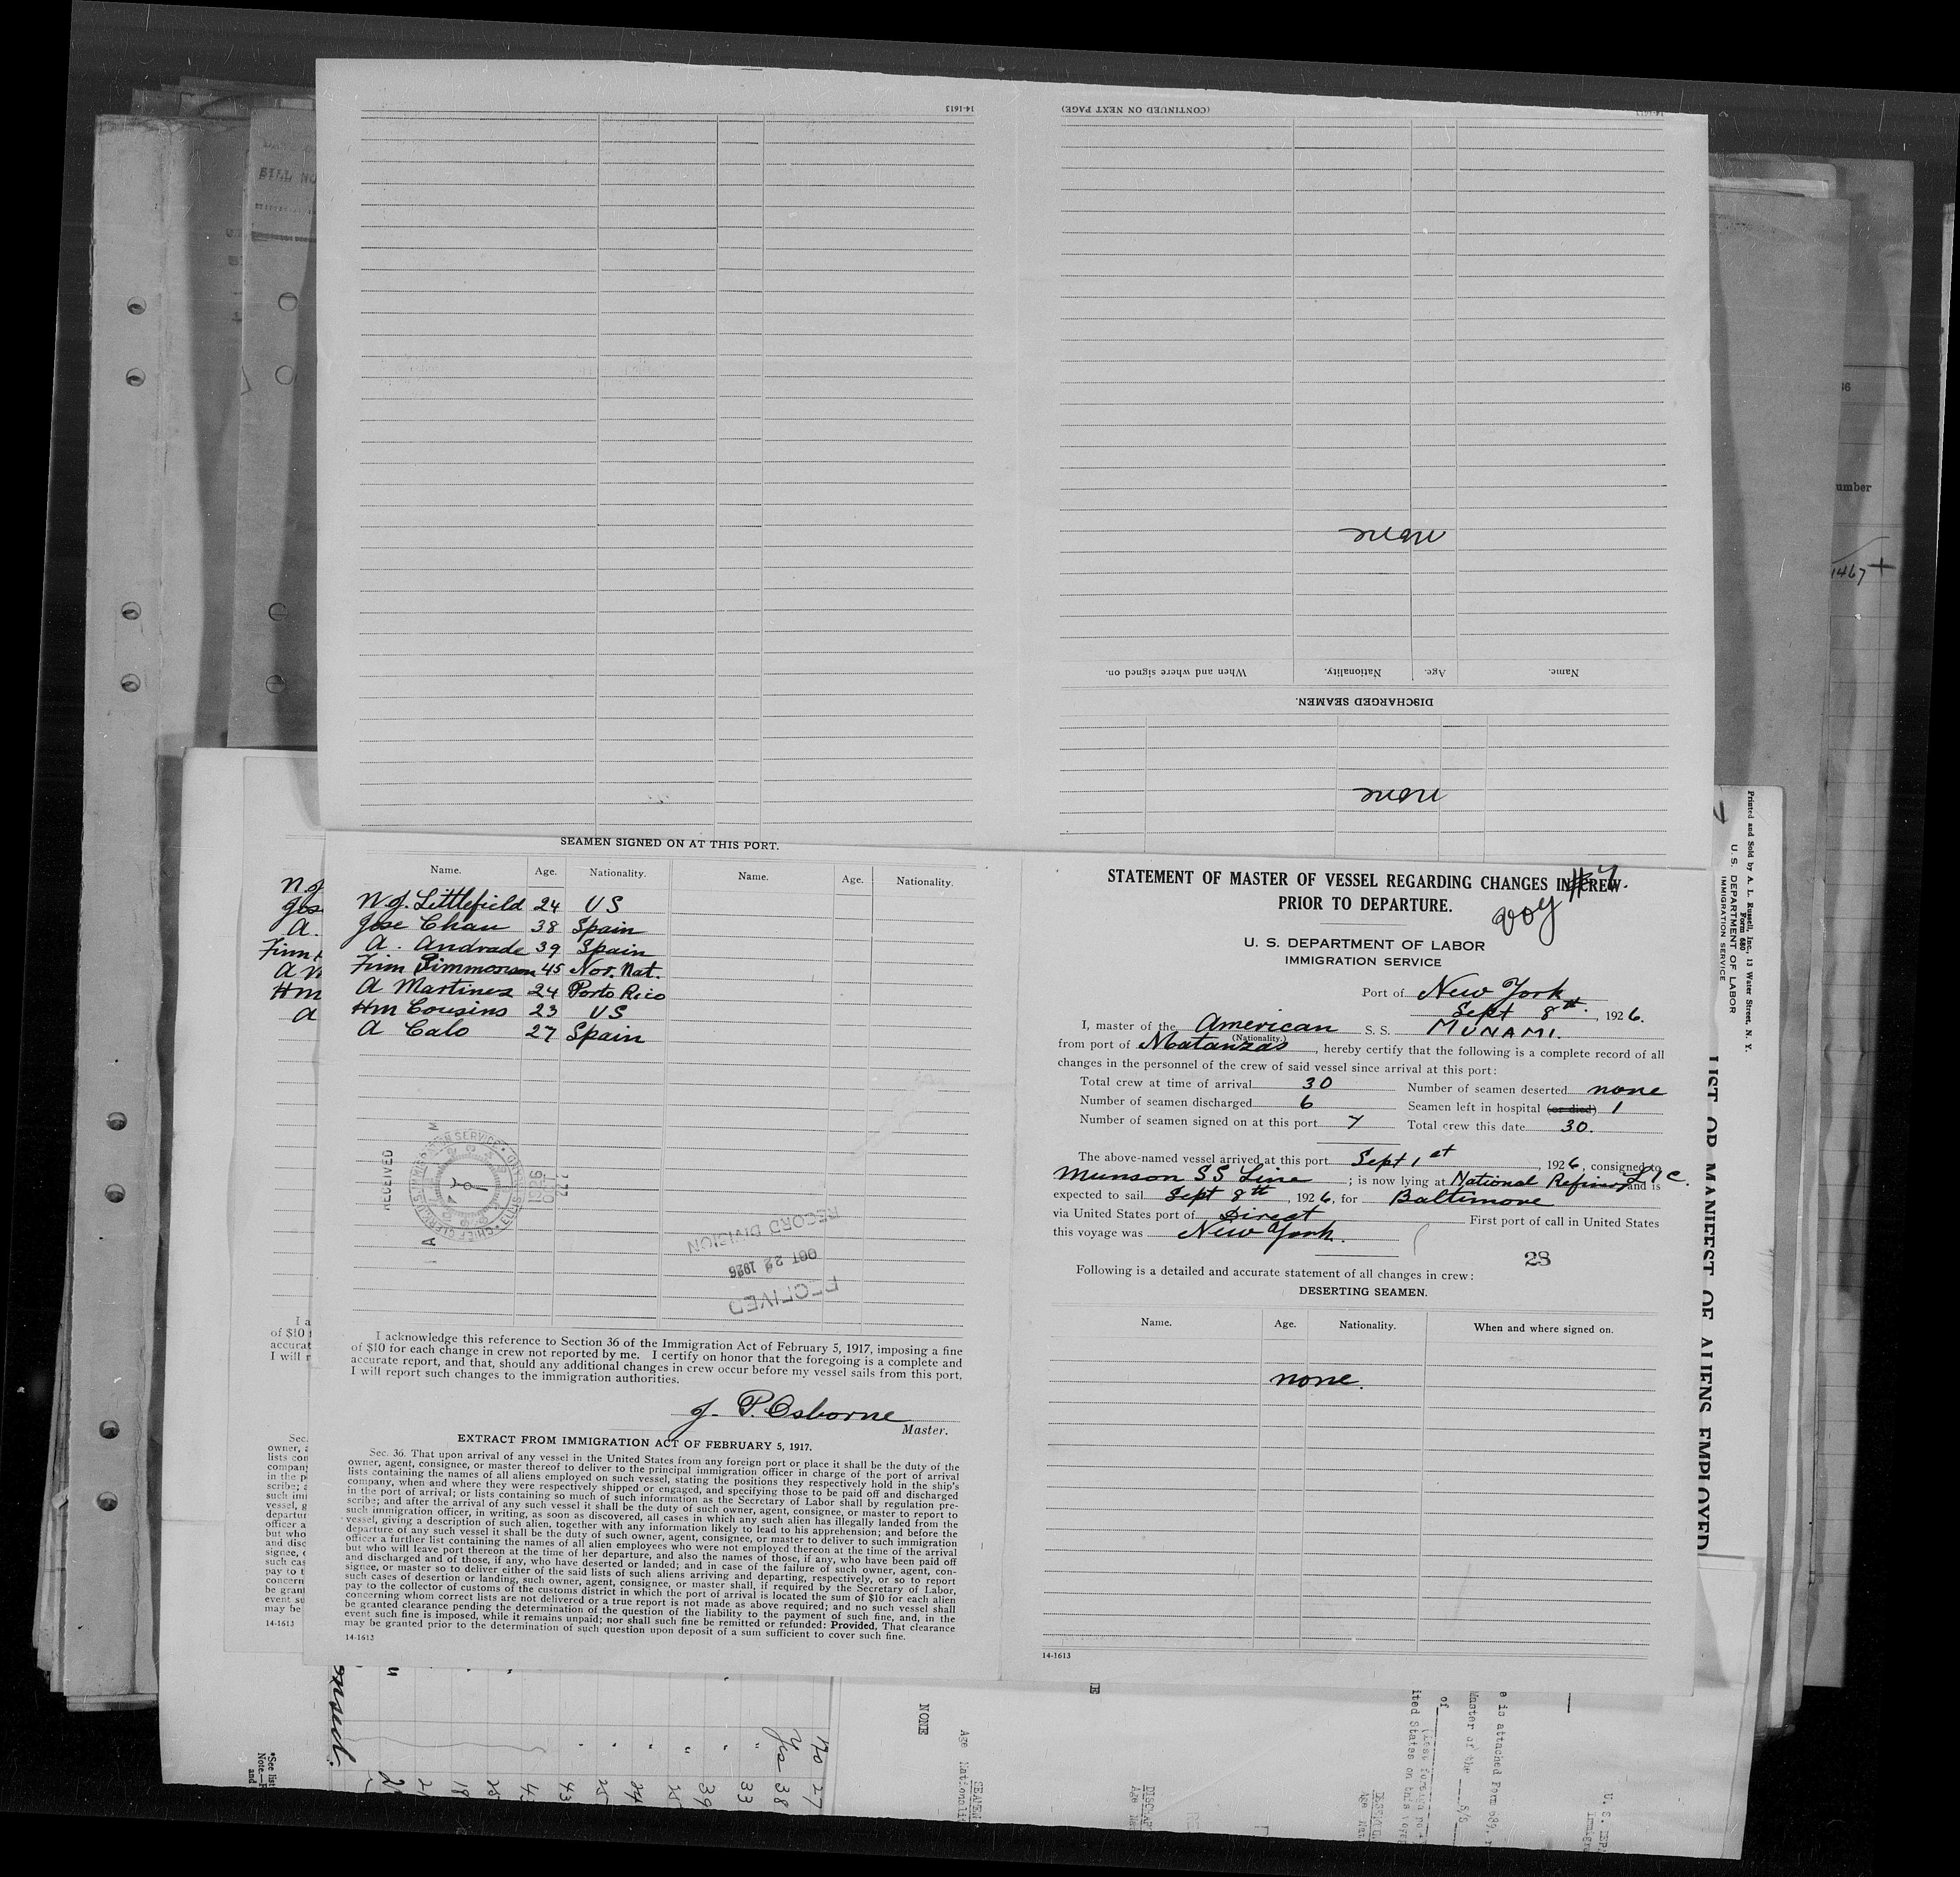 14-1613
(CONTINUED ON NEXT PAGE)
14-1613
none
When and where signed on.
Nationality.
Age.
Name.
DISCHARGED SEAMEN.
none
SEAMEN SIGNED ON AT THIS PORT.
Name. Age. Nationality. Name. Age. Nationality.
N. J. Littlefield 24 US
Jose Chau 38 Spain
A. Andrade 39 Spain
Finn Simmonsen 45 Nor. Nat.
A Martinez 24 Porto Rico
Hm Cousins 23 US
A Calo 27 Spain
RECEIVED
RECORD DIVISION
OCT 22 1926
RECEIVED
I acknowledge this reference to Section 36 of the Immigration Act of February 5, 1917, imposing a fine
of $10 for each change in crew not reported by me. I certify on honor that the foregoing is a complete and
accurate report, and that, should any additional changes in crew occur before my vessel sails from this port,
I will report such changes to the immigration authorities.
J. P. Osborne
Master.
EXTRACT FROM IMMIGRATION ACT OF FEBRUARY 5, 1917.
Sec. 36. That upon arrival of any vessel in the United States from any foreign port or place it shall be the duty of the
owner, agent, consignee, or master thereof to deliver to the principal immigration officer in charge of the port of arrival
lists containing the names of all aliens employed on such vessel, stating the positions they respectively hold in the ship's
company, when and where they were respectively shipped or engaged, and specifying those to be paid off and discharged
in the port of arrival; or lists containing so much of such information as the Secretary of Labor shall by regulation pre-
scribe; and after the arrival of any such vessel it shall be the duty of such owner, agent, consignee, or master to report to
such immigration officer, in writing, as soon as discovered, all cases in which any such alien has illegally landed from the
vessel, giving a description of such alien, together with any information likely to lead to his apprehension; and before the
departure of any such vessel it shall be the duty of such owner, agent, consignee, or master to deliver to such immigration
officer a further list containing the names of all alien employees who were not employed thereon at the time of the arrival
but who will leave port thereon at the time of her departure, and also the names of those, if any, who have been paid off
and discharged and of those, if any, who have deserted or landed; and in case of the failure of such owner, agent, con-
signee, or master so to deliver either of the said lists of such aliens arriving and departing, respectively, or so to report
such cases of desertion or landing, such owner, agent, consignee, or master shall, if required by the Secretary of Labor,
pay to the collector of customs of the customs district in which the port of arrival is located the sum of $10 for each alien
concerning whom correct lists are not delivered or a true report is not made as above required; and no such vessel shall
be granted clearance pending the determination of the question of the liability to the payment of such fine, and, in the
event such fine is imposed, while it remains unpaid; nor shall such fine be remitted or refunded: Provided, That clearance
may be granted prior to the determination of such question upon deposit of a sum sufficient to cover such fine.
14-1613
STATEMENT OF MASTER OF VESSEL REGARDING CHANGES IN CREW
PRIOR TO DEPARTURE.
voy
U. S. DEPARTMENT OF LABOR
IMMIGRATION SERVICE
Port of New York
Sept 8th, 1926.
I, master of the American S. S. MUNAMI.
(Nationality.)
from port of Matanzas, hereby certify that the following is a complete record of all
changes in the personnel of the crew of said vessel since arrival at this port:
Total crew at time of arrival 30 Number of seamen deserted none
Number of seamen discharged 6 Seamen left in hospital (or died) 1
Number of seamen signed on at this port 7 Total crew this date 30.
The above-named vessel arrived at this port Sept 1st, 1926, consigned to
Munson SS Line; is now lying at National Refinery L I C. and is
expected to sail Sept 8th, 1926, for Baltimore
via United States port of Direct First port of call in United States
this voyage was New York.
28
Following is a detailed and accurate statement of all changes in crew:
DESERTING SEAMEN.
Name. Age. Nationality. When and where signed on.
none.
14-1613
Printed and Sold by A. L. Russell, Inc., 13 Water Street, N. Y.
Form 680
U. S. DEPARTMENT OF LABOR
IMMIGRATION SERVICE
LIST OR MANIFEST OF ALIENS EMPLOYED
umber
1467
BILL NO
NONE